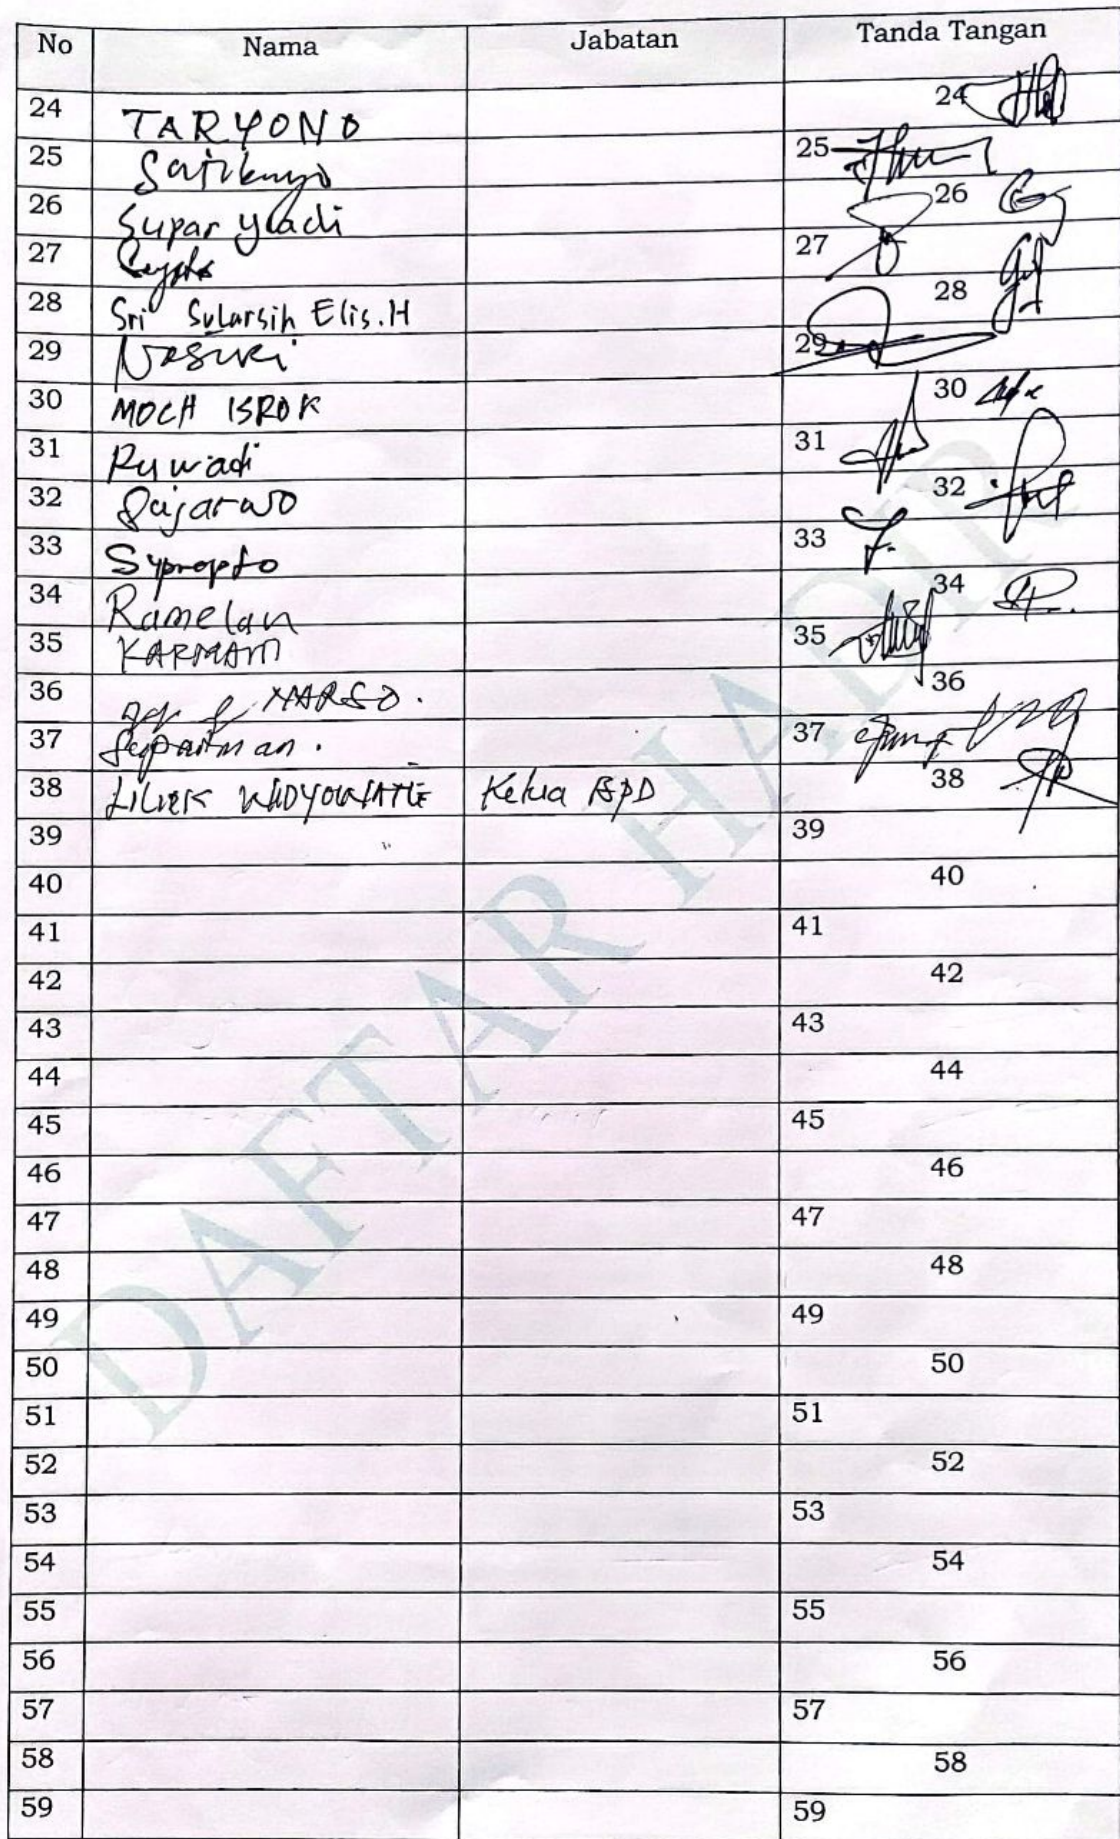 No Nama Jabatan Tanda Tangan
24 TARYONO 24
25 25
26 Supar yadi 26
27 27
28 Sri Sularsih Elis.H 28
29 Nasuki 29
30 MOCH ISROK 30
31 Ruwadi 31
32 Sujarwo 32
33 33
34 Ramelan 34
35 35
36 36
37 Suparman. 37
38 Ketua BPD 38
39 39
40 40
41 41
42 42
43 43
44 44
45 45
46 46
47 47
48 48
49 49
50 50
51 51
52 52
53 53
54 54
55 55
56 56
57 57
58 58
59 59
DAFTAR HADIR